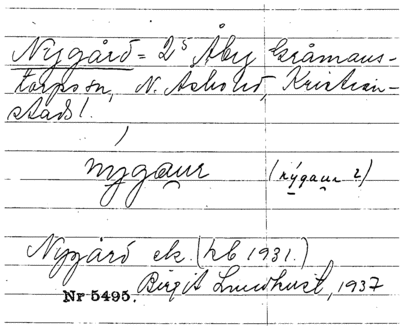 Nygård = 2⁵ Åby Gråmans-
torps sn, N. Åsbo hd, Kristian-
stads l.
nygaur (nýgaur 2)
Nygård ek. (hb 1931.)
Birgit Lundhust, 1937
Nr 5495.